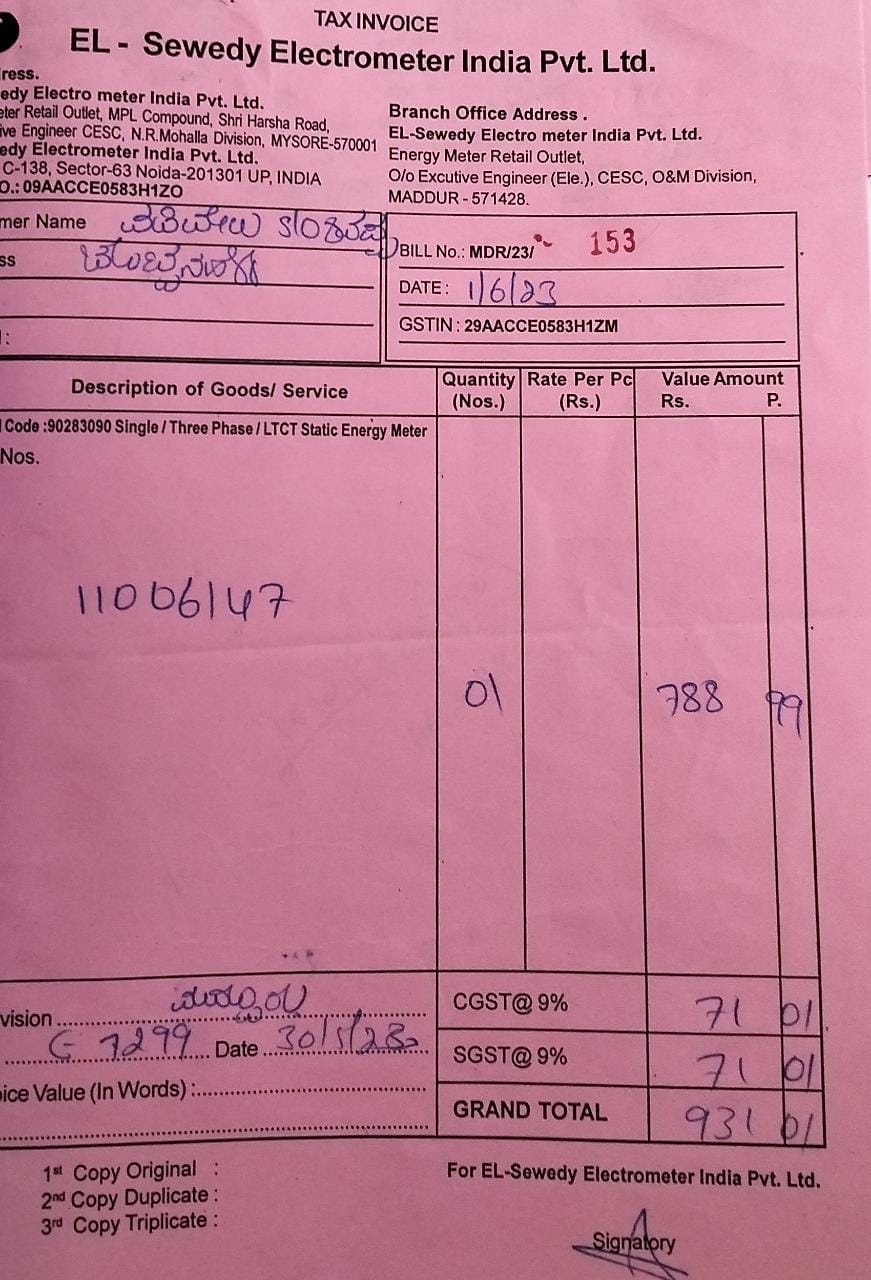 TAX INVOICE
EL - Sewedy Electrometer India Pvt. Ltd.
ress.
edy Electro meter India Pvt. Ltd.
eter Retail Outlet, MPL Compound, Shri Harsha Road,
ive Engineer CESC, N.R.Mohalla Division, MYSORE-570001
edy Electrometer India Pvt. Ltd.
C-138, Sector-63 Noida-201301 UP, INDIA
O.: 09AACCE0583H1ZO
Branch Office Address .
EL-Sewedy Electro meter India Pvt. Ltd.
Energy Meter Retail Outlet,
O/o Excutive Engineer (Ele.), CESC, O&M Division,
MADDUR - 571428.
mer Name
ss
:
BILL No.: MDR/23/ 153
DATE : 1/6/23
GSTIN : 29AACCE0583H1ZM
Description of Goods/ Service Quantity (Nos.) Rate Per Pc (Rs.) Value Amount Rs. P.
Code :90283090 Single / Three Phase / LTCT Static Energy Meter
Nos.
11006147
01 788 99
vision
7299 Date 30/5/23
ice Value (In Words) :
CGST@ 9% 71 01
SGST@ 9% 71 01
GRAND TOTAL 931 01
1st Copy Original :
2nd Copy Duplicate :
3rd Copy Triplicate :
For EL-Sewedy Electrometer India Pvt. Ltd.
Signatory